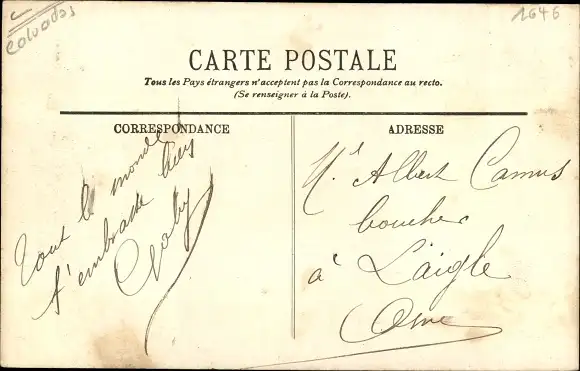 Calvados
1646
CARTE POSTALE
Tous les Pays étrangers n'acceptent pas la Correspondance au recto.
(Se renseigner à la Poste).
CORRESPONDANCE
Tout le monde
t'embrasse bien
Gaby
ADRESSE
Mr Albert Camus
boucher
à L'aigle
Orne